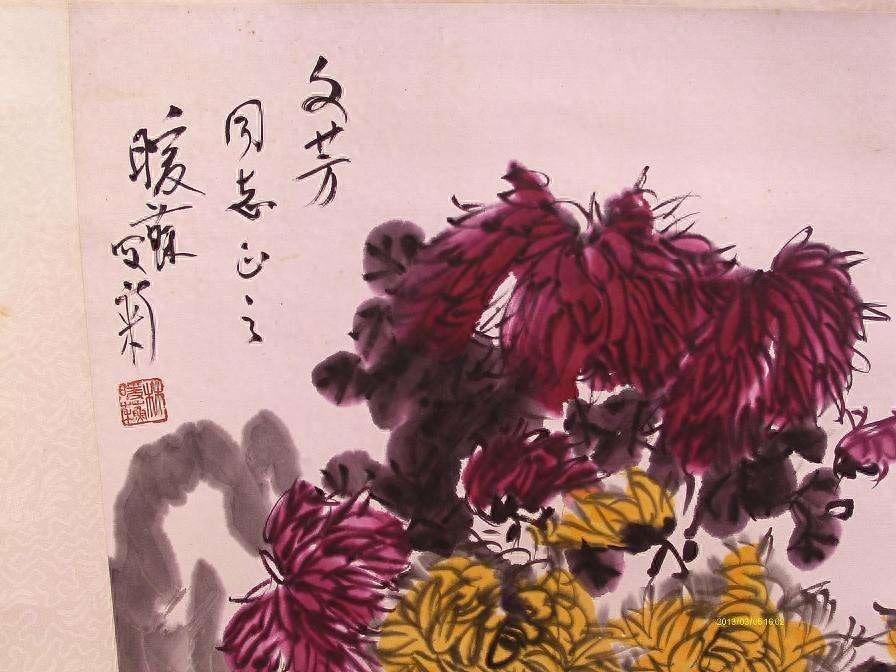 文芳
同志正之
暖蘇写菊
2013/03/05 16:02